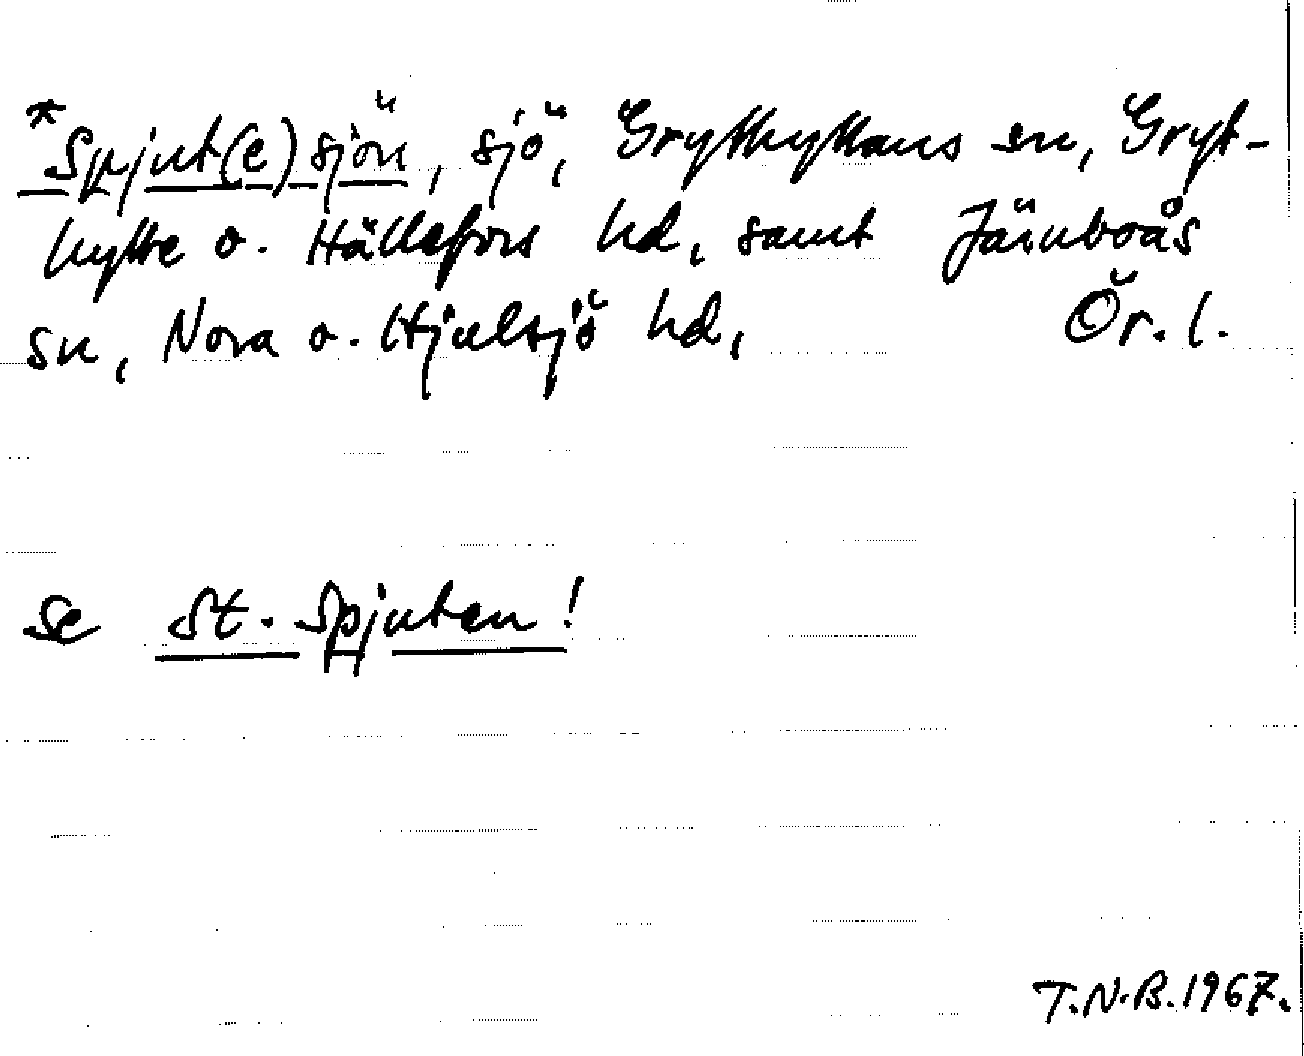 *Spjut(e)sjön, sjö, Grythyttans sn, Gryt-
hytte o. Hällefors hd, samt Järnboås
sn, Nora o. Hjulsjö hd, Ör. l.
se St. Spjuten!
T.N.B. 1967.